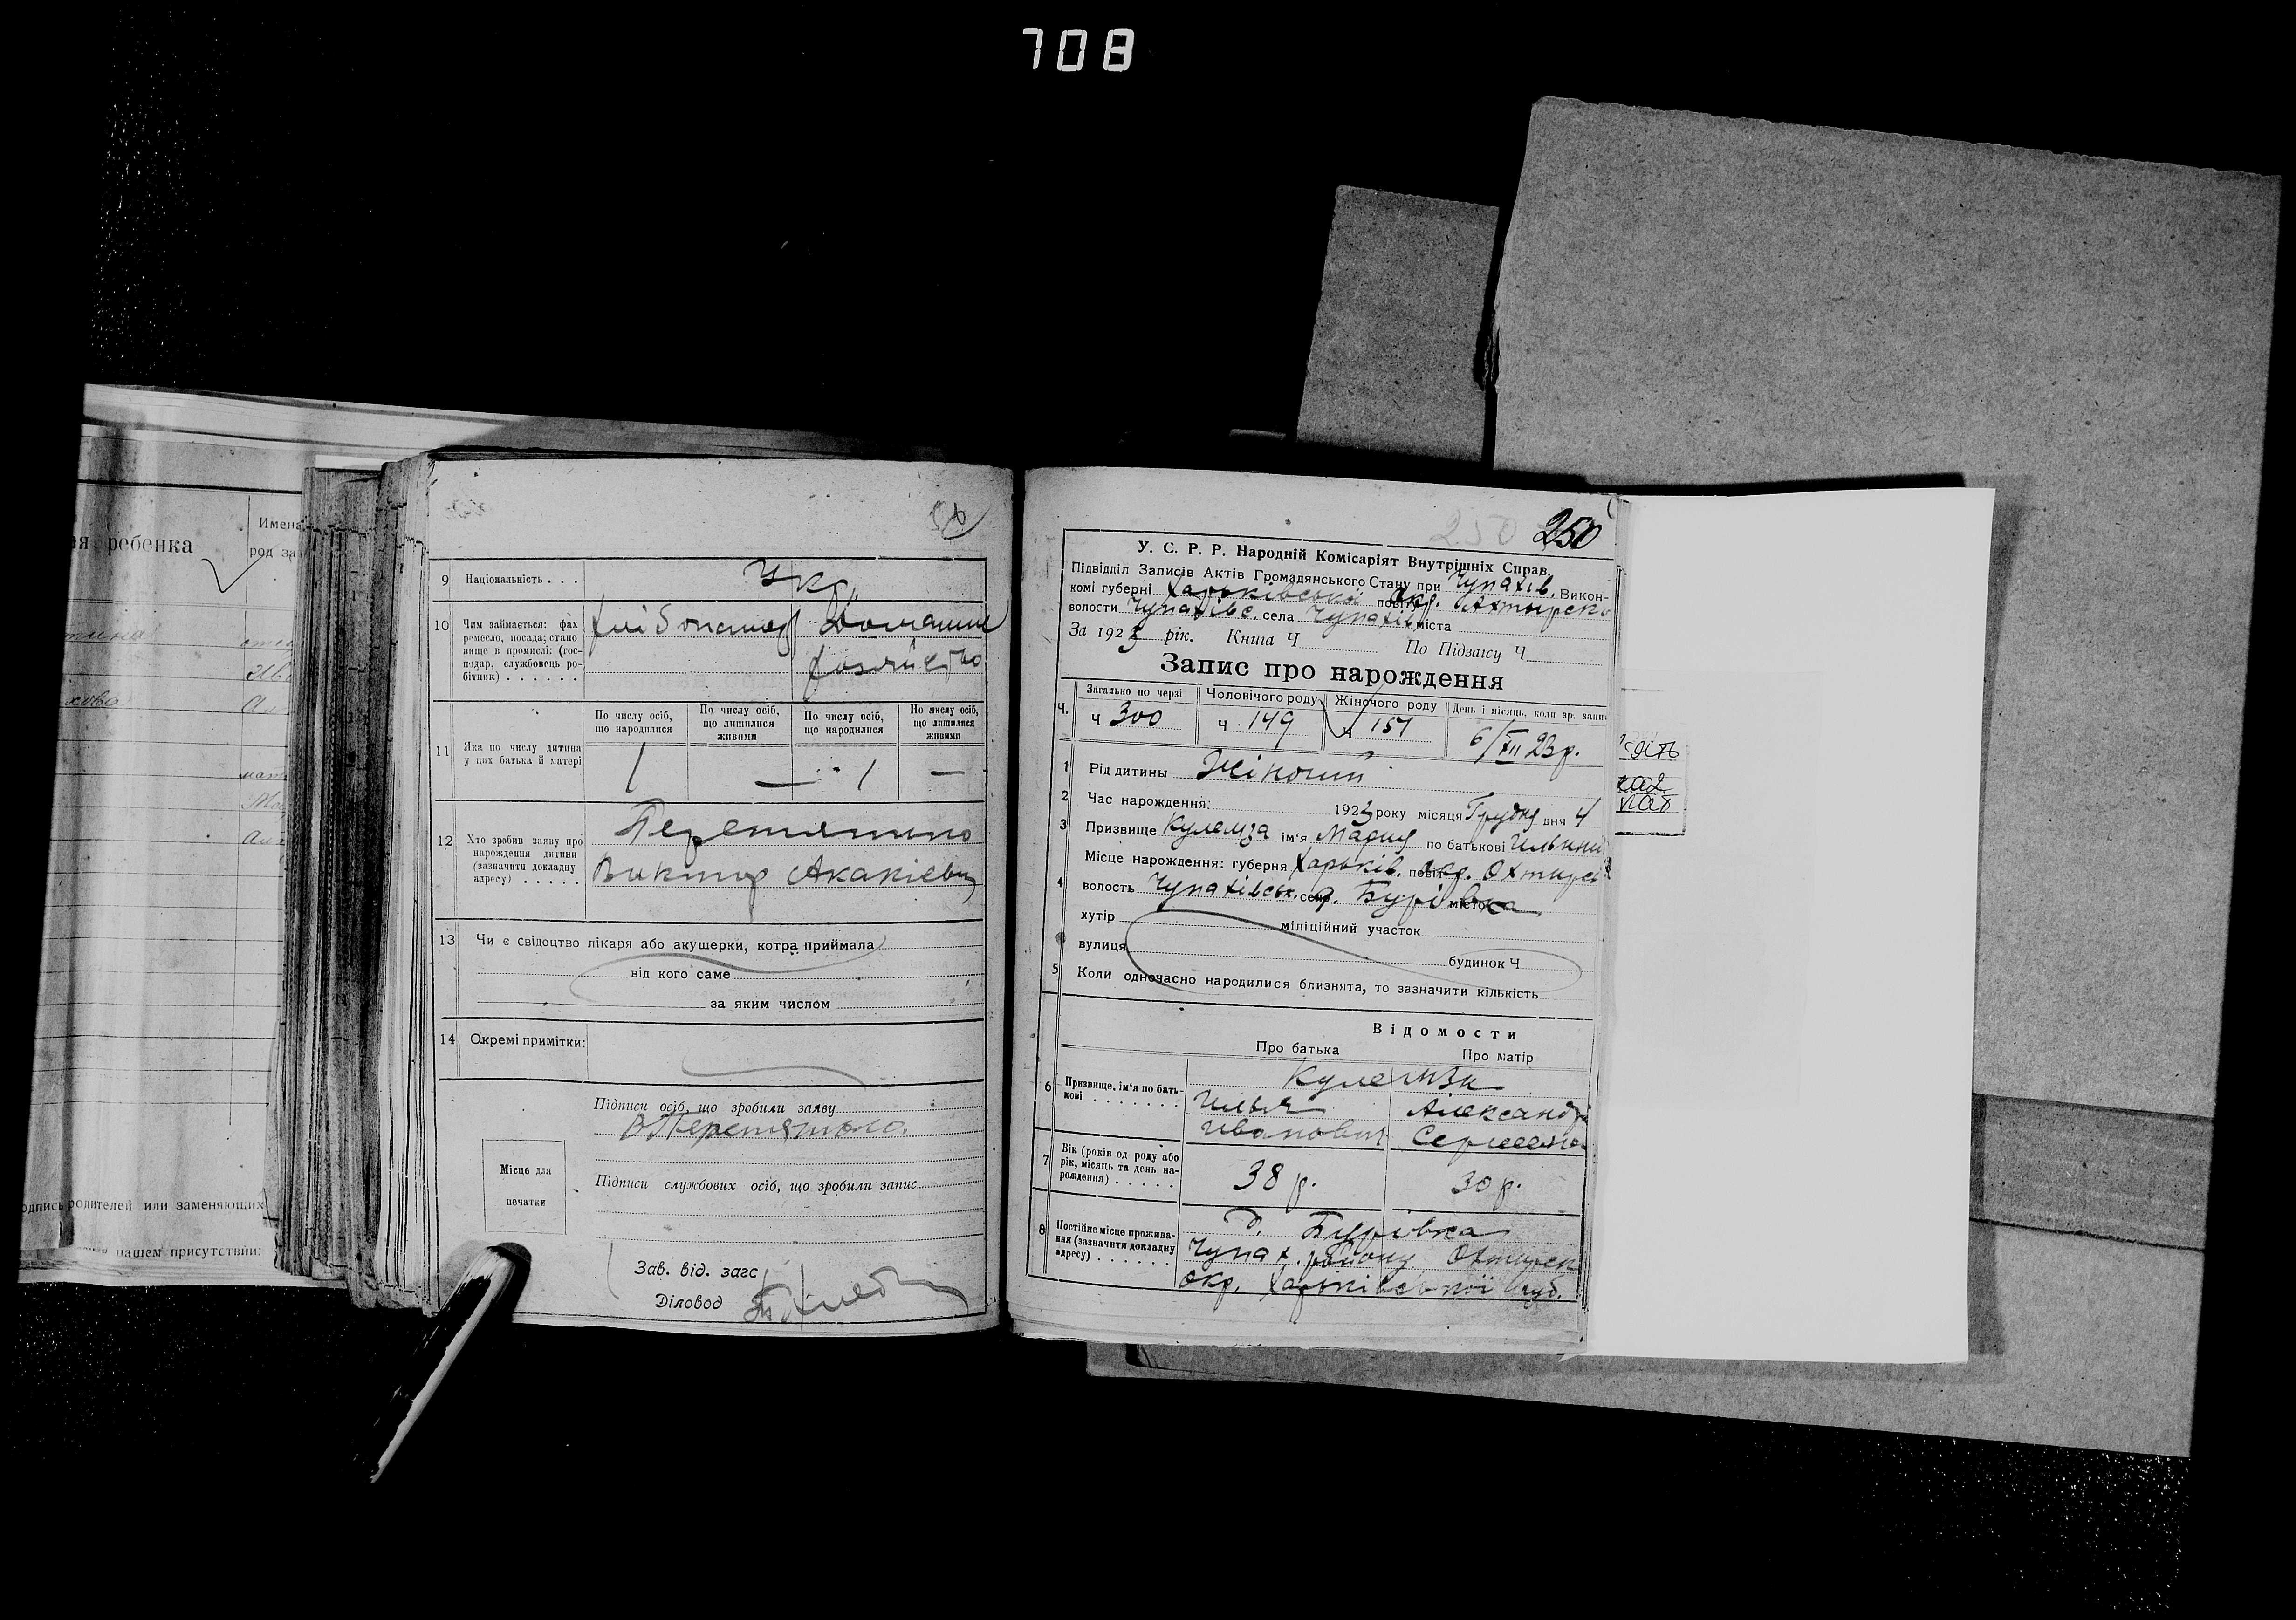 708
ая ребенка
Имена
род за
одпись родителей или заменяющих
нашем присутствии:
50
9 Національність . . . Укр.
10 Чим займається: фах
ремесло, посада; стано
вище в промислі: (гос-
подар, службовець ро-
бітник) . . . . . .
хлібопашец Домашнє
хозяйство
11 Яка по числу дитина
у цих батька й матері
По числу осіб,
що народилися
По числу осіб,
що лишилися
живими
По числу осіб,
що народилися
По числу осіб,
що лишилися
живими
1 — 1 —
12 Хто зробив заяву про
нарождення дитини
(зазначити докладну
адресу) . . . . .
Перетятько
Виктор Акакіевич
13 Чи є свідоцтво лікаря або акушерки, котра приймала
від кого саме
за яким числом
14 Окремі примітки:
Підписи осіб, що зробили заяву
В Перетятько.
Місце для
печатки
Підписи службових осіб, що зробили запис
Зав. від. загс
Діловод
250 250
У. С. Р. Р. Народній Комісаріят Внутрішніх Справ.
Підвідділ Записів Актів Громадянського Стану при Чупахів. Викон-
комі губерні Харьківської повіту окр. Ахтырско
волости Чупахівс. села Чупахів міста
За 1923 рік. Книга Ч По Підзагсу Ч
Запис про нарождення
Ч. Загально по черзі Чоловічого роду Жіночого роду День і місяць, коли зр. запис
ч 300 ч 149 ч 151 6/XII 23 р.
1 Рід дитины Жіночий
2 Час нарождення: 1923 року місяця Грудня дня 4
3 Призвище Кулемза ім'я Мария по батькові Ильини
4 Місце нарождення: губерня Харьків. повіт окр. Охтирсь
волость Чупахівськ. село д. Бурівка місто
хутір міліційний участок
вулиця будинок Ч
5 Коли одночасно народилися близнята, то зазначити кількість
Відомости
Про батька Про матір
6 Призвище, ім'я по бать-
кові . . . . . . .
Кулемзи
Илья Александра
Иванович Сергеевна
7 Вік (років од роду або
рік, місяць та день на-
рождення) . . . . .
38 р. 30 р.
8 Постійне місце прожива-
ння (зазначити докладну
адресу) . . . . . .
д. Бурівка
Чупах. району Охтирськ
окр. Харьківської губ.